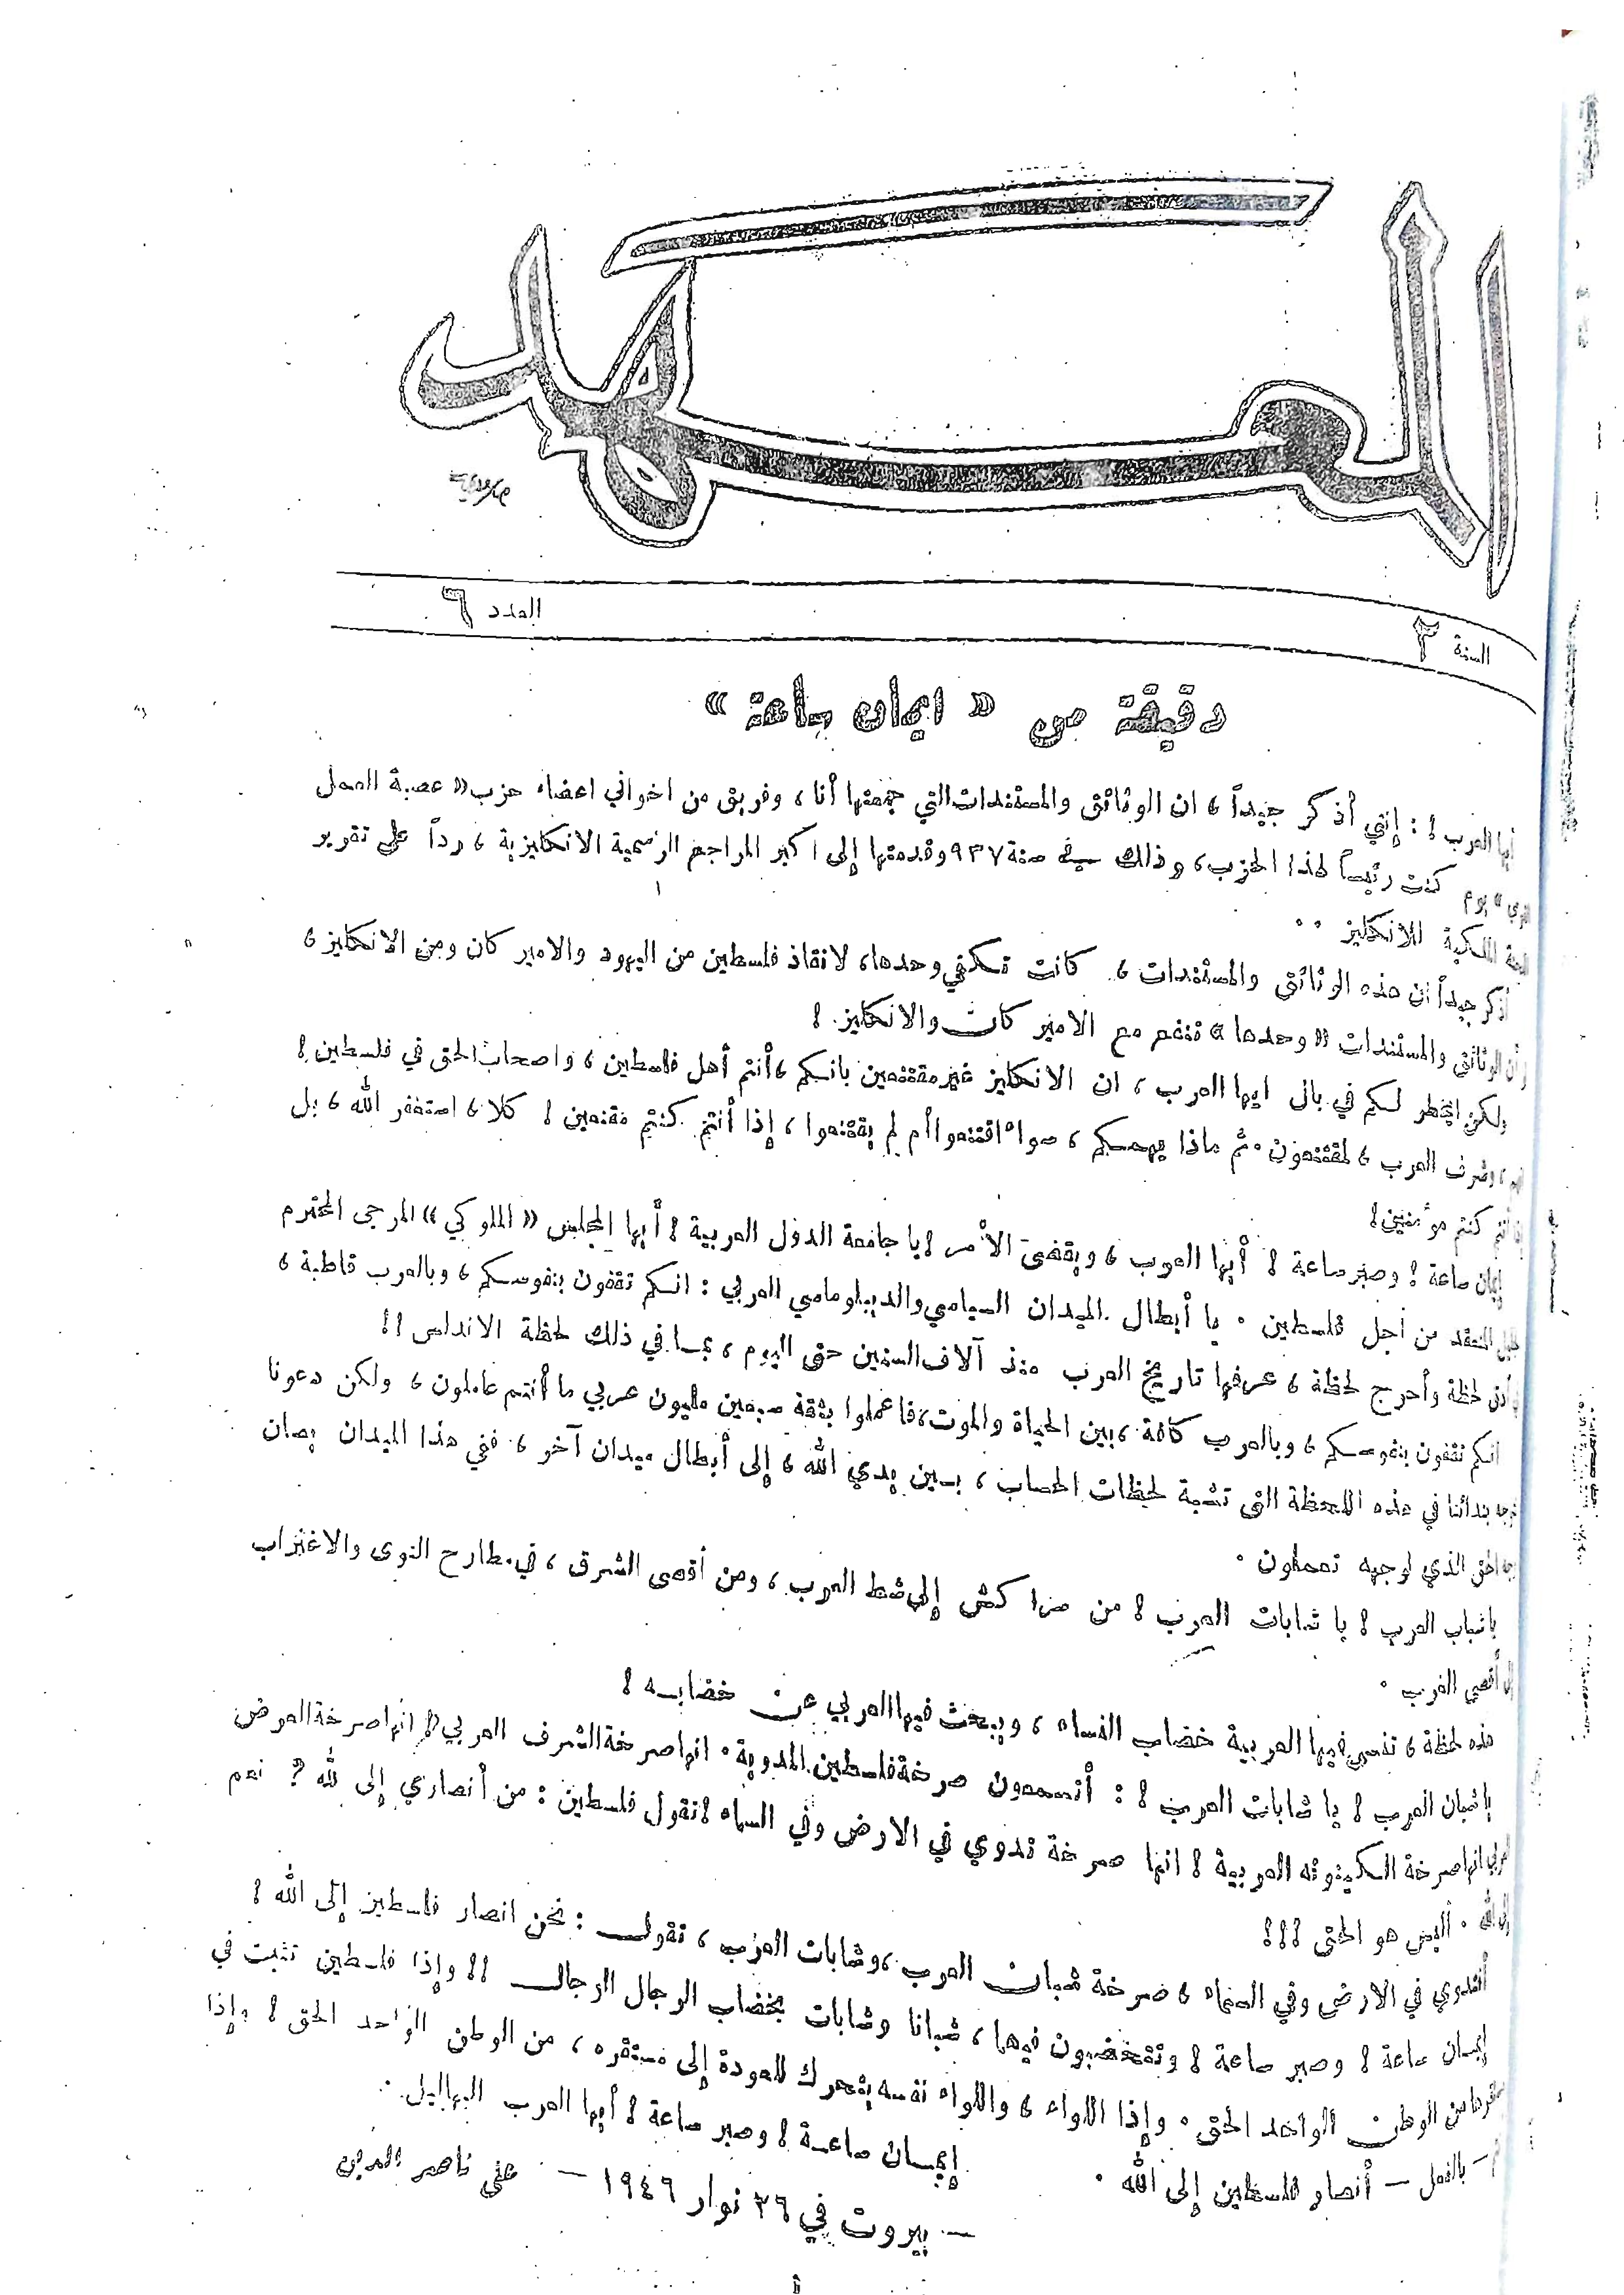 العهد
السنة ٢
العدد ٦
دقيقة من « ايمان ساعة »
أيها العرب! : إنني أذكر جيداً، ان الوثائق والمستندات التي جمعتها أنا، وفريق من اخواني اعضاء حزب « عصبة العمل
القومي » يوم كنت رئيساً لهذا الحزب، وذلك في سنة ٩٣٧ وقدمتها إلى اكبر المراجع الرسمية الانكليزية، رداً على تقرير
اللجنة الملكية للانكليز ..
أذكر جيداً أن هذه الوثائق والمستندات، كانت تكفي وحدها، لانقاذ فلسطين من اليهود والامير كان ومن الانكليز،
أن الوثائق والمستندات « وحدها » تنفع مع الامير كان والانكليز!
ولكن ايخطر لكم في بال ايها العرب، ان الانكليز غير مقتنعين بانكم، أنتم أهل فلسطين، واصحاب الحق في فلسطين!
وشرف العرب، لمقتنعون. ثم ماذا يهمكم، سواء اقتنعوا أم لم يقتنعوا، إذا أنتم كنتم مقتنعين! كلا، استغفر الله، بل
أنتم كنتم مؤمنين!
إيمان ساعة! وصبر ساعة! أيها العرب، ويقضى الأمر! يا جامعة الدول العربية! أيها المجلس « الملوكي » المرجى المحترم
المنعقد من اجل فلسطين. يا أبطال الميدان السياسي والديبلوماسي العربي: انكم تقفون بنفوسكم، وبالعرب قاطبة،
لحظة وأحرج لحظة، عرفها تاريخ العرب منذ آلاف السنين حتى اليوم، بما في ذلك لحظة الاندلس!!
انكم تقفون بنفوسكم، وبالعرب كافة، بين الحياة والموت، فاعملوا بثقة سبعين مليون عربي ما أنتم عاملون، ولكن دعونا
بندائنا في هذه اللحظة التي تشبه لحظات الحساب، بين يدي الله، إلى أبطال ميدان آخر، ففي هذا الميدان يصان
الحق الذي لوجهه تعملون.
يا شباب العرب! يا شابات العرب! من مراكش إلى شط العرب، ومن أقصى الشرق، في مطارح النوى والاغتراب
إلى أقصى الغرب.
هذه لحظة، تنسى فيها العربية خضاب النساء، ويبحث فيها العربي عن خضابه!
يا شبان العرب! يا شابات العرب! : أتسمعون صرخة فلسطين المدوية. انها صرخة الشرف العربي! انها صرخة العرض
العربي انها صرخة الكينونه العربية! انها صرخة تدوي في الارض وفي السماء! تقول فلسطين: من أنصاري إلى الله? نعم
إلى الله. أليس هو الحق!!!
أفتدوي في الارض وفي السماء، صرخة شبان العرب، وشابات العرب، تقول: نحن انصار فلسطين إلى الله!
إيمان ساعة! وصبر ساعة! وتتخضبون فيها، شبانا وشابات بخضاب الرجال الرجال!! وإذا فلسطين تثبت في
مقرها من الوطن الواحد الحق. وإذا اللواء، واللواء نفسه يتحرك للعودة إلى مستقره، من الوطن الواحد الحق! وإذا
– بالفعل – أنصار فلسطين إلى الله.
إيمان ساعة! وصبر ساعة! أيها العرب البهاليل.
– بيروت في ٢٦ نوار ١٩٤٦ – علي ناصر الدين